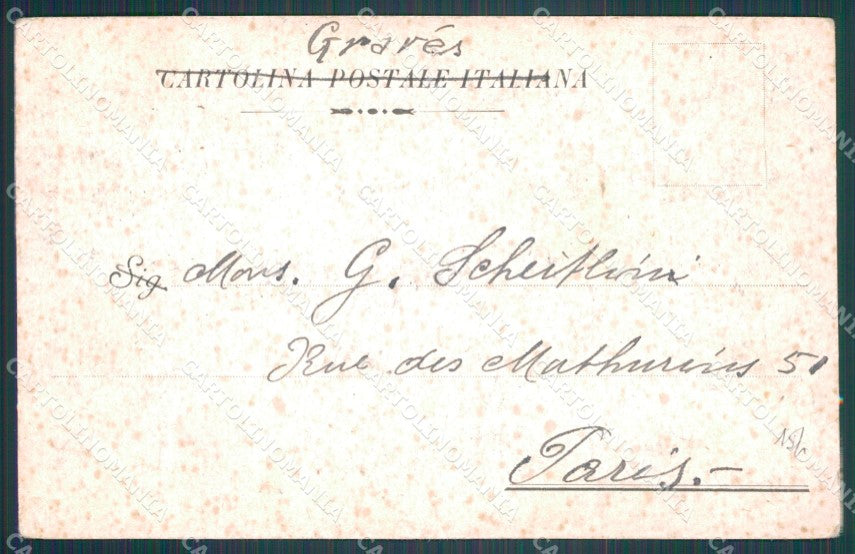 Gravés
CARTOLINA POSTALE ITALIANA
Sig. Mons. G. Scheitlini
Rue des Mathurins 51
15/
Paris.-
CARTOLINOMANIA